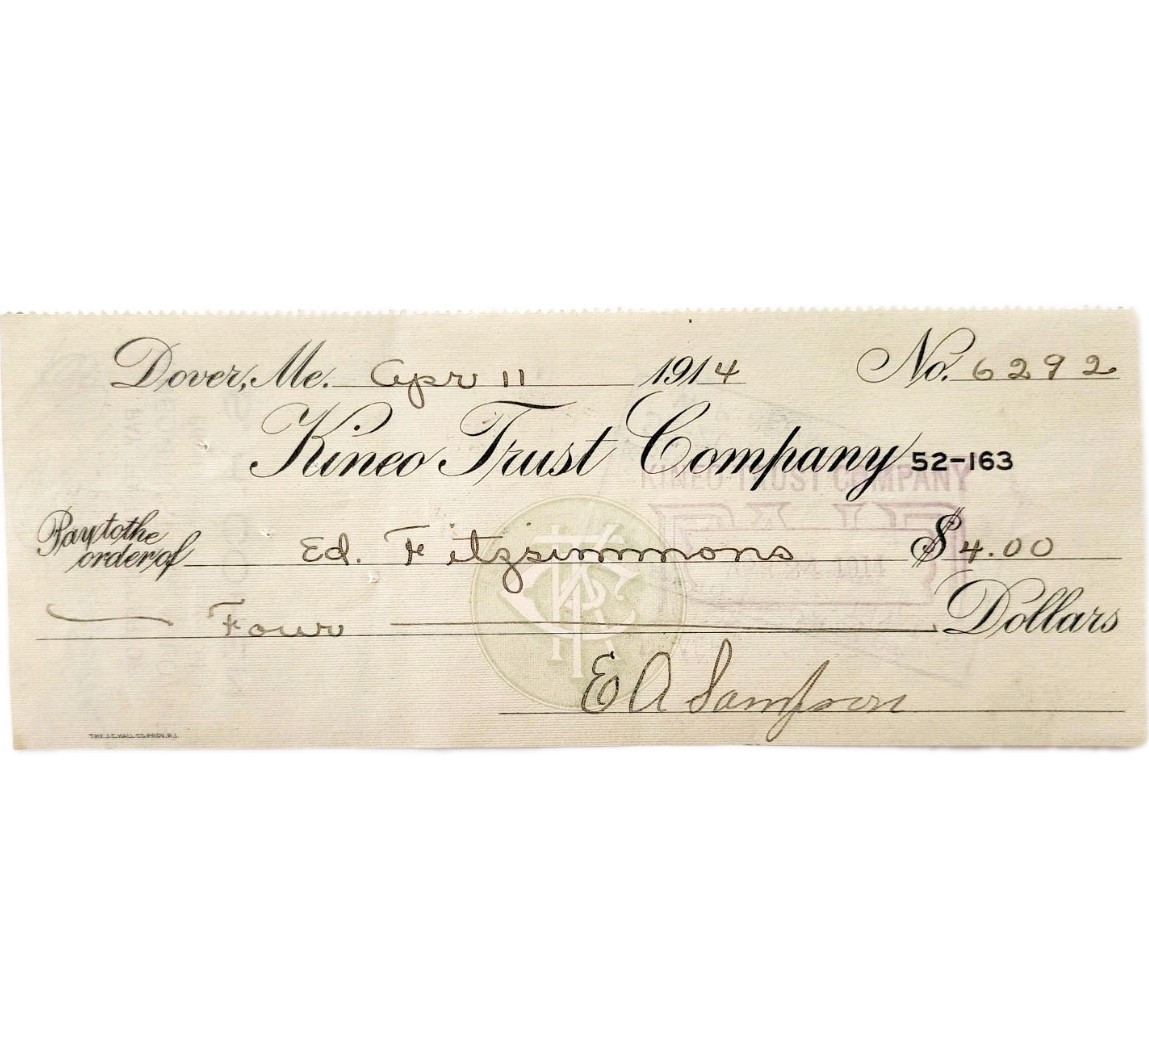 Dover, Me. Apr 11 1914 No. 6292
Kineo Trust Company 52-163
KINEO TRUST COMPANY
Pay to the order of Ed. Fitzsimmons $4.00
PAID
Four Dollars
E A Sampson
THE J.C. HALL CO. PROV. R.I.